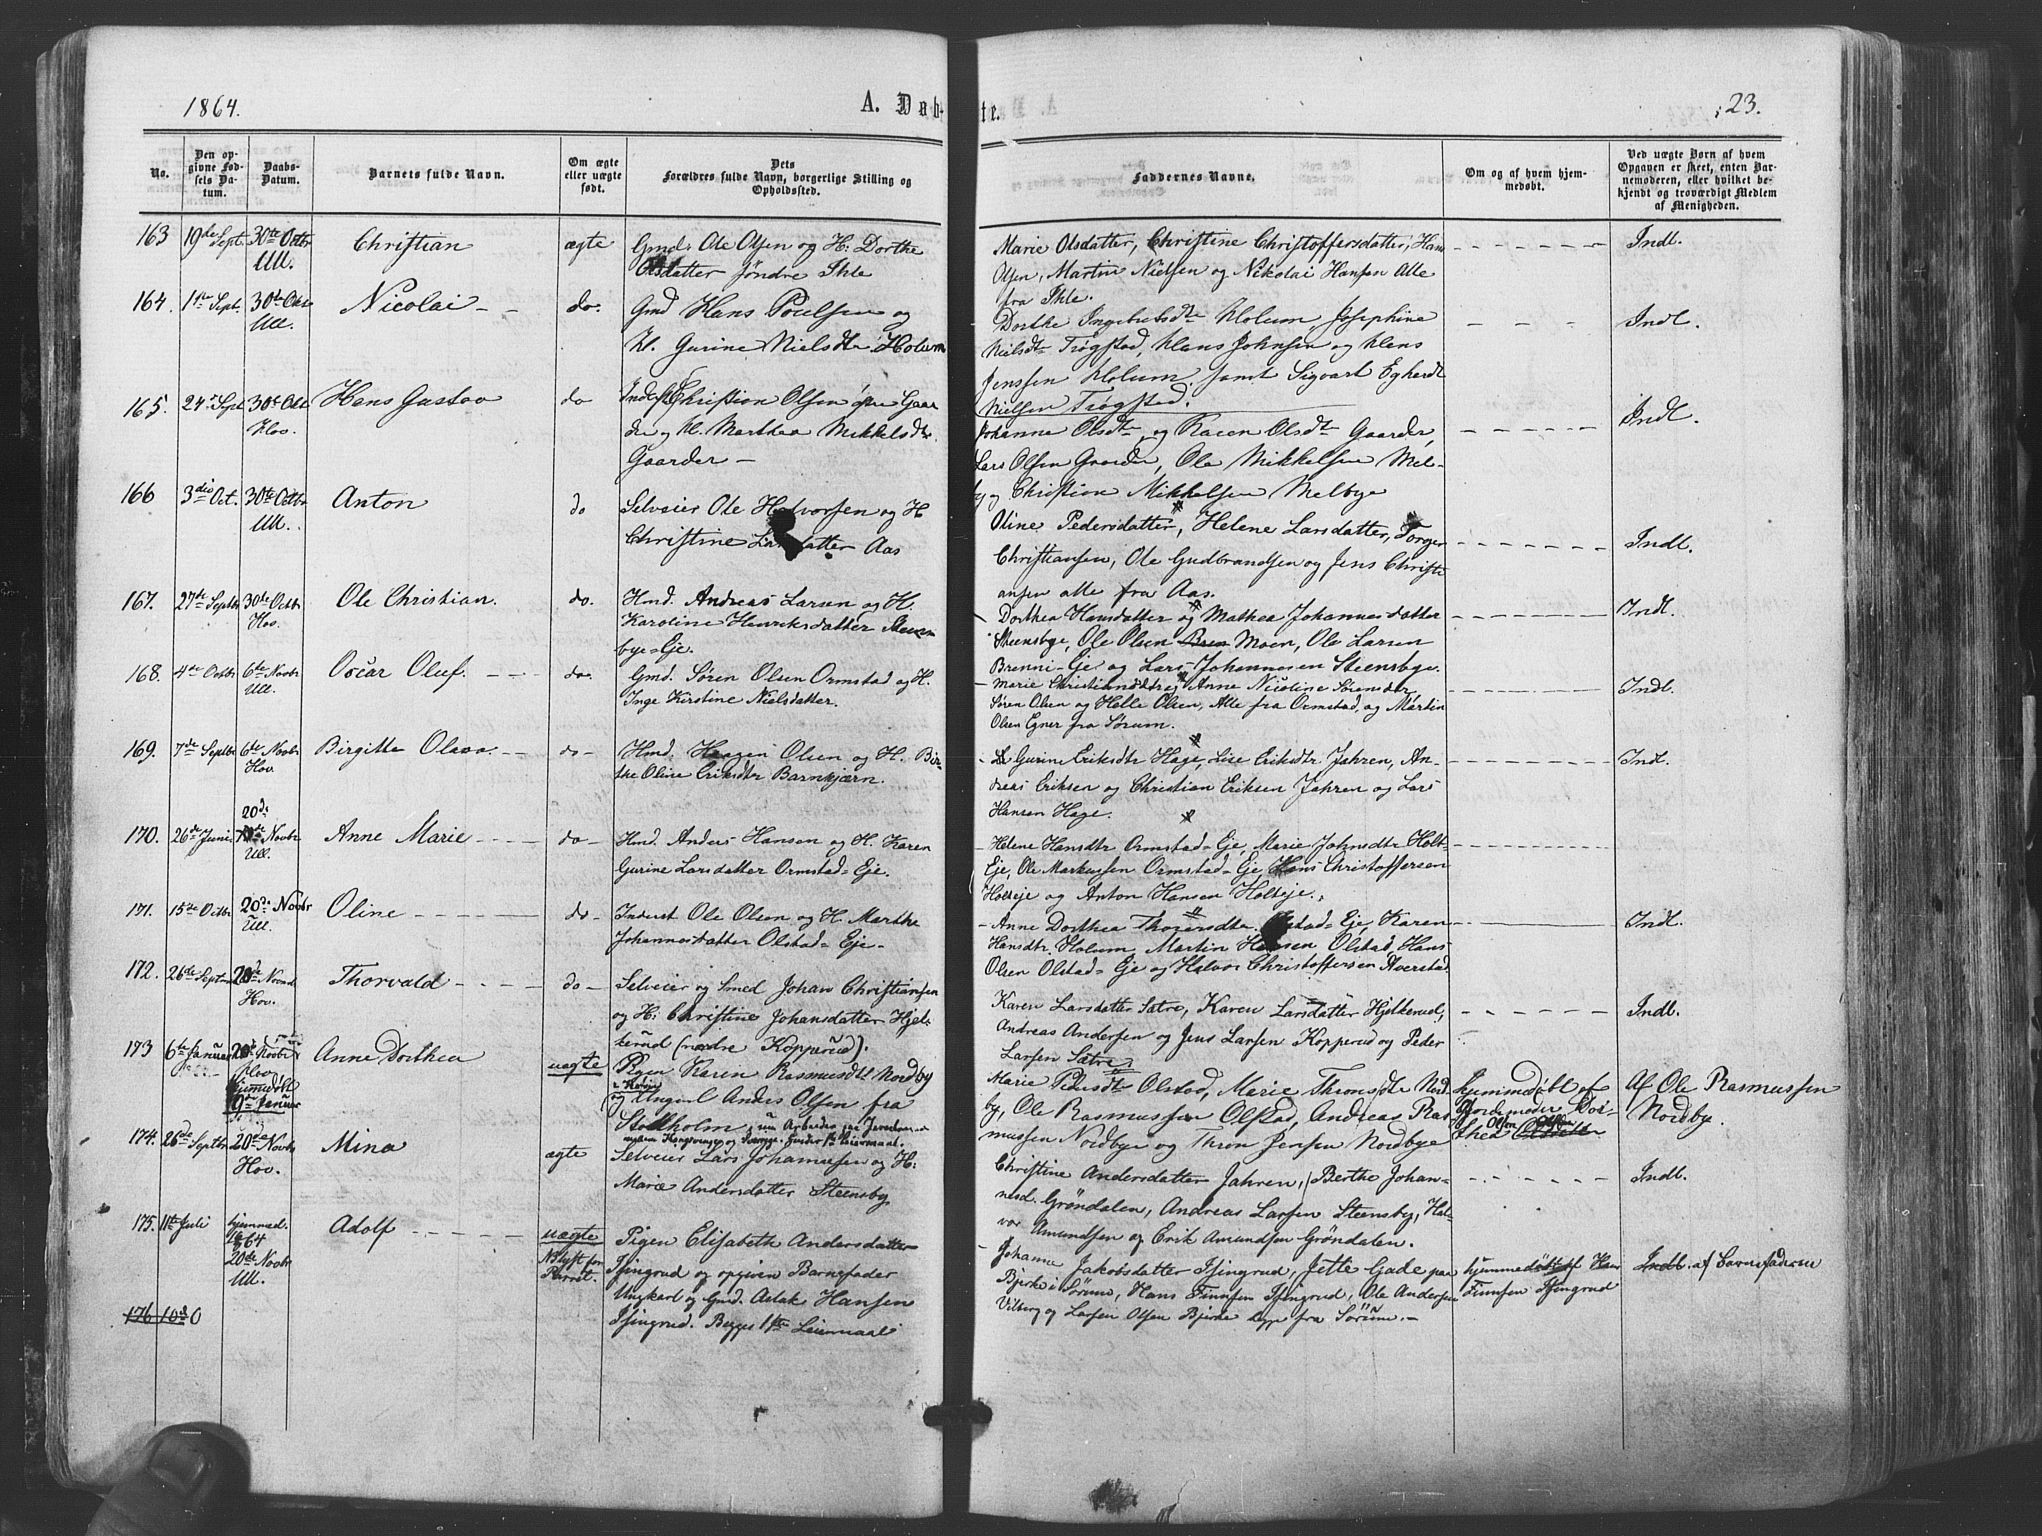 1864.
A. Døb-
te.
23.
No.
Den op-
givne Fød-
sels Da-
tum.
Daabs-
Datum.
Barnets fulde Navn.
Om ægte
eller uægte
født.
Dets
Forældres fulde Navn, borgerlige Stilling og
Opholdssted.
Faddernes Navne.
Om og af hvem hjem-
medøbt.
Ved uægte Børn af hvem
Opgaven er skeet, enten Bar-
nemoderen, eller hvilket be-
kjendt og troværdigt Medlem
af Menigheden.
163 19de Sept. 30te Octbr Ull. Christian ægte
Gmd. Ole Olsen og H: Dorthe
Olsdatter søndre Ihle
Marie Olsdatter, Christine Christoffersdatter, Hans
Olsen, Martin Nielsen og Nikolai Hansen Alle
fra Ihle.
Indl.
164. 1ste Sept. 30te Oktr Ull. Nicolai do.
Gmd Hans Poulsen og
H. Gurine Nielsdtr Holum
Dorthe Ingebretsdtr Holum, Josephine
Nielsdtr Trøgstad, Hans Johnsen og Hans
Jenssen Holum, samt Sigvart Eghardt
Nielsen Trøgstad.
Indl.
165. 24r Sept 30te Okt Hov. Hans Gustav do
Inderst Christian Olsen øvre Gaar
der og H. Marthea Mikkelsdtr
Gaarder
Johanne Olsdtr og Karen Olsdtr Gaarder,
Lars Olsen Gaarder, Ole Mikkelsen Mel-
by og Christian Mikkelsen Melbye
Indl.
166 3die Oct. 30te Octbr Ull. Anton do
Selveier Ole Halvorsen og H
Christine Larsdatter Aas
Oline Pedersdatter, Helene Larsdatter, Torger
Christiansen, Ole Gudbrandsen og Jens Christi
ansen alle fra Aas.
Indl.
167. 27de Septbr 30te Octbr Hov. Ole Christian. do.
Hmd. Andreas Larsen og H.
Karoline Henriksdatter Steens
bye-Eje.
Dorthea Hansdatter og Mathea Johannesdatter
Steensbye, Ole Olsen Moen, Ole Larsen
Brenni-Eje og Lars Johannesen Steensbye.
Indl.
168. 4de Octbr 6te Novbr Ull. Oscar Oluf. do.
Gmd. Søren Olsen Ormstad og H.
Inge Kirstine Nielsdatter.
Marie Christiansdtr og Anne Nicoline Sørensdtr,
Søren Olsen og Helle Olsen, Alle fra Ormstad, og Martin
Olsen Egner fra Sørum.
Indl.
169. 7de Septbr 6te Novbr Hov. Birgitte Olava do
Hmd. Haagen Olsen og H. Bir-
the Oline Eriksdtr Barnkjærn.
Gurine Eriksdtr Hage, Lise Eriksdtr Jahren, An-
dreas Eriksen og Christian Eriksen Jahren og Lars
Hansen Hage.
Indl.
170. 26de Juni 20de Novbr Ull. Anne Marie do
Hmd. Anders Hansen og H. Karen
Gurine Larsdatter Ormstad-Eje.
Helene Hansdtr Ormstad-Eje, Marie Johnsdtr Holt-
Eje, Ole Markussen Ormstad-Eje, Hans Christoffersen
Holteje og Anton Hansen Holteje.
171. 15de Octbr 20de Novbr Ull. Oline do
Inderst Ole Olsen og H. Marthe
Johannesdatter Olstad-Eje
Anne Dorthea Thorersdtr. Olstad-Eje, Karen
Hansdtr. Holum, Martin Hansen Olstad, Hans
Olsen Olstad-Eje og Halvor Christoffersen Averstad.
Indl.
172. 26de Septbr 20de Novbr Hov. Thorvald do
Selveier og Smed Johan Christiansen
og H: Christine Johansdatter Hjel-
kerud (nordre Kopperud).
Karen Larsdatter Sætre, Karen Larsdatter Hjelkerud,
Andreas Andersen og Jens Larsen Kopperud og Peder
Larsen Sætre
Indl.
173 6te Januar 20de Novbr Hov hjemmedøbt 9de Januar Anne Dorthea uægte
Pigen Karen Rasmusdtr Nordby
og Ungkarl Anders Olsen fra
Stokholm,
Marie Pedersdtr Olstad, Marie Thronsdtr Nord
by, Ole Rasmussen Olstad, Andreas Ras
mussen Nordbye og Thron Jensen Nordbye
hjemmedøbt af
Jordemoder Dor-
thea
Af Ole Rasmussen
Nordby.
174. 26de Septbr 20de Novbr Hov. Mina ægte
Selveier Lars Johannesen og H:
Marie Andersdatter Steensby
Christine Andersdatter Jahren, Berthe Johan-
nesd. Grøndalen, Andreas Larsen Steensby, Hal-
vor Amundsen og Erik Amundsen Grøndalen.
Indl.
175. 11te Juli hjemmed. 1864 20de Novbr Ull. Adolf uægte
Pigen Elisabeth Andersdatter
Isingrud og opgiven Barnefader
Ungkarl og Gmd. Aslak Hansen
Isingrud. Begges 1ste Leiermaal
Johanne Jakobsdatter Isingrud, Jette Gade paa
Bjerke i Sørum, Hans Finnsen Isingrud, Ole Andersen
Vilberg og Larsen Olsen Bjerke fra Sørum.
hjemmedøbt af Hans
Finnsen Isingrud
Indl. af Barnefaderen
176 10de O